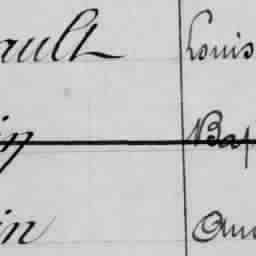 ault Louis
in Bap
in Am